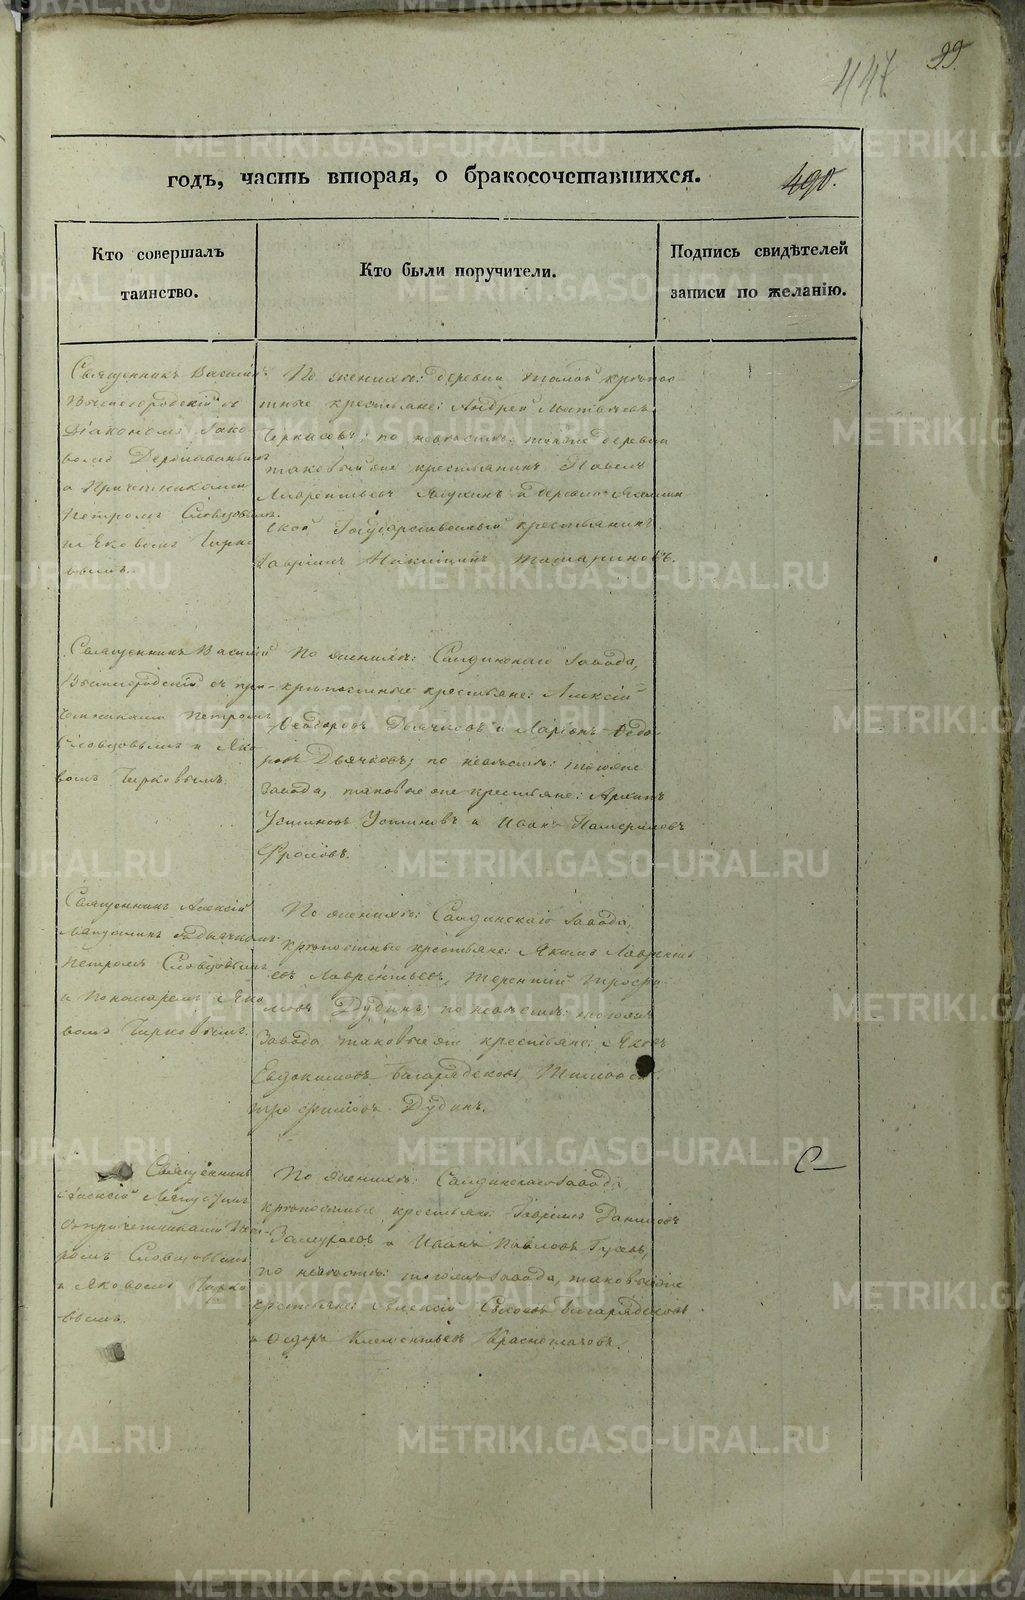 447
99
годъ, часть вторая, о бракосочетавшихся.
490.
Кто совершалъ
таинство.
Кто были поручители.
Подпись свидѣтелей
записи по желанію.
Священникъ Василій
Вышегородскій съ
Діакономъ Яко-
вомъ
и Причетниками
Петромъ Словцовымъ
и Яковомъ Чирко
вымъ.
По женихѣ: деревни крѣпос-
тные крестьяне: Андрей
Черкасовъ; по невѣстѣ: деревни
таковый же крестьянинъ Павелъ
Лаврентьевъ и деревни
ской Государственный крестьянинъ
Никитинъ Татариновъ.
Священникъ Василій
Вышегородскій съ при-
четниками Петромъ
Словцовымъ и Яко-
вомъ Чирковымъ.
По женихѣ: Салдинскаго завода,
крѣпостные крестьяне: Алексій
Ѳеодоровъ Дьячковъ и Ларіонъ Ѳедо-
ровъ Дьячковъ; по невѣстѣ: тогоже
завода, таковые же крестьяне: Архипъ
Устиновъ Устиновъ и Иванъ
Фроловъ.
Священникъ Алексій
Ляпустинъ съ дьячкомъ
Петромъ Словцовымъ
и Пономаремъ Яко
вомъ Чирковымъ.
По женихѣ: Салдинскаго завода,
крѣпостные крестьяне: Якимъ Лаврентъ
евъ Лаврентьевъ, Терентій Трофи
мовъ Дудинъ; по невѣстѣ: тогоже
завода таковые же крестьяне: Яковъ
Евдокимовъ Багарядсковъ, Тимоѳей
Трофимовъ Дудинъ.
Священникъ
Алексій Ляпустинъ
съ причетниками Пет-
ромъ Словцовымъ
и Яковомъ Чирко
вымъ.
По женихѣ: Салдинскаго завода
крѣпостные крестьяне: Гавріилъ Даниловъ
Замураевъ и Иванъ Павловъ Гусевъ,
по невѣстѣ: тогоже завода, таковые же
крестьяне: Алексій Багарядсковъ
и Ѳедоръ Климентьевъ